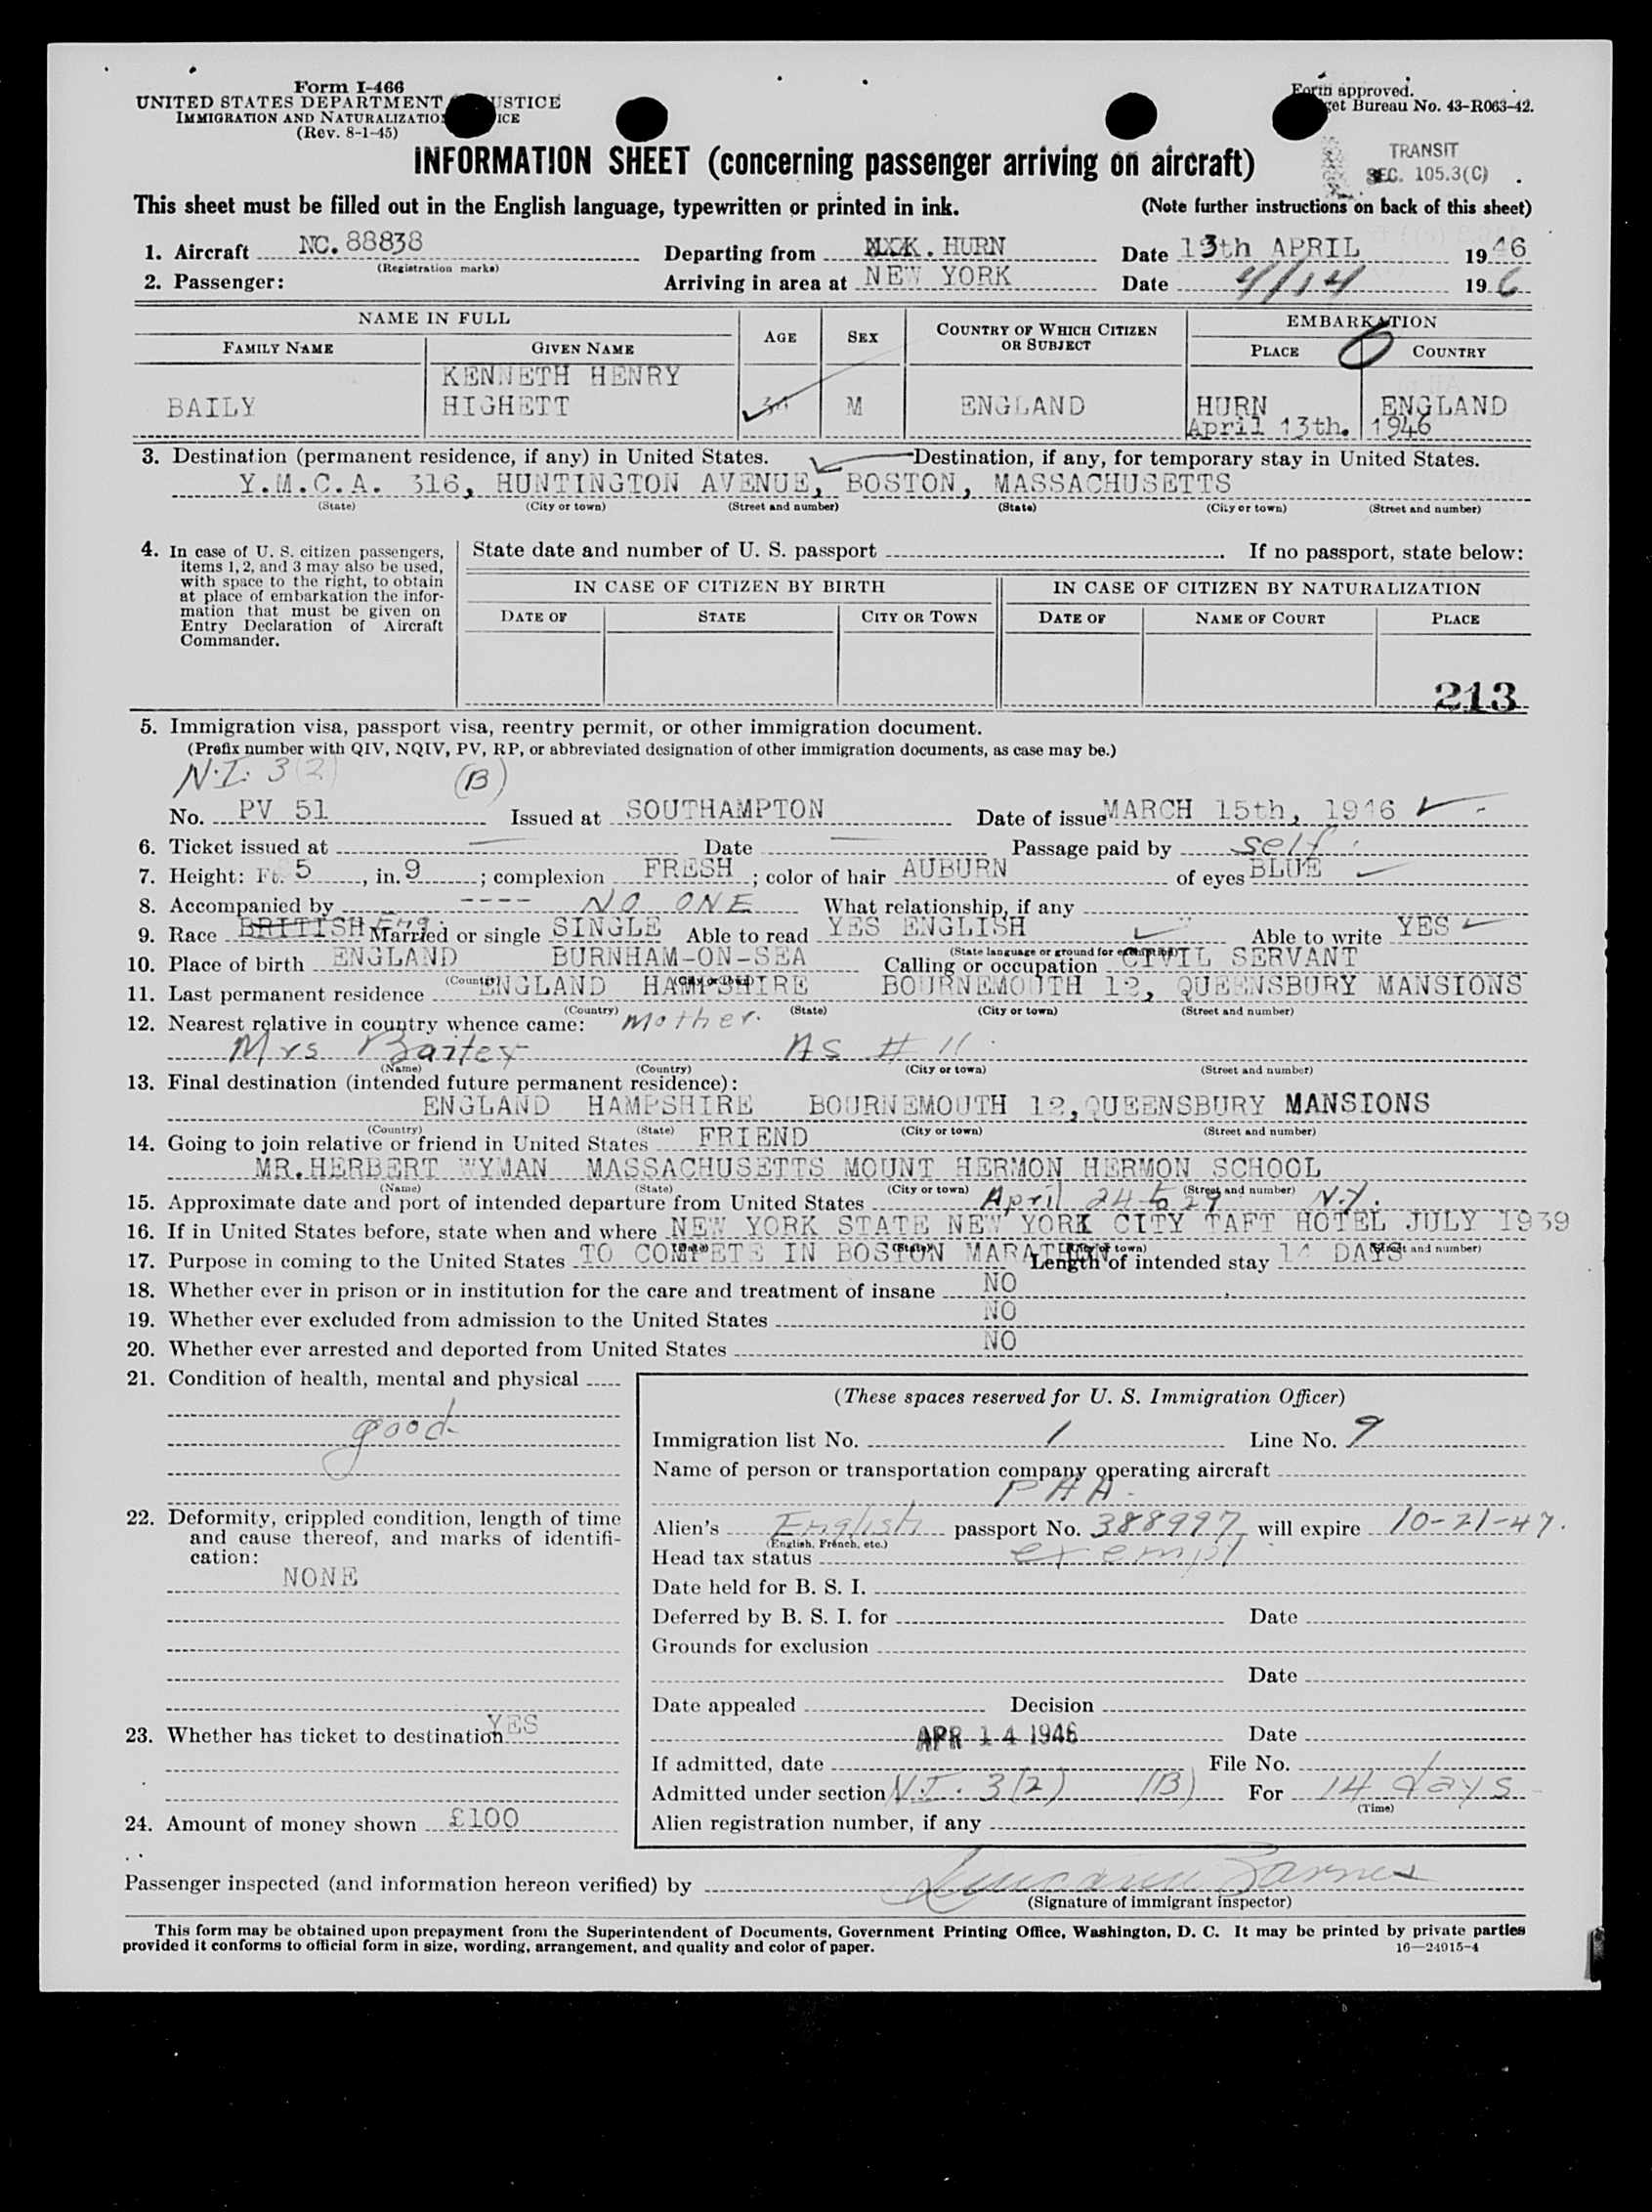 Form I-466
UNITED STATES DEPARTMENT JUSTICE
IMMIGRATION AND NATURALIZATION
(Rev. 8-1-45)
Form approved.
Bureau No. 43-R063-42.
INFORMATION SHEET (concerning passenger arriving on aircraft)
TRANSIT
SEC. 105.3(C)
This sheet must be filled out in the English language, typewritten or printed in ink. (Note further instructions on back of this sheet)
1. Aircraft NC. 88838 Departing from HURN Date 13th APRIL 1946
(Registration marks)
2. Passenger: Arriving in area at NEW YORK Date 4/14 19 6
NAME IN FULL AGE SEX COUNTRY OF WHICH CITIZEN OR SUBJECT EMBARKATION
FAMILY NAME GIVEN NAME PLACE COUNTRY
KENNETH HENRY
BAILY HIGHETT M ENGLAND HURN ENGLAND
April 13th. 1946
3. Destination (permanent residence, if any) in United States. Destination, if any, for temporary stay in United States.
Y.M.C.A. 316, HUNTINGTON AVENUE, BOSTON, MASSACHUSETTS
(State) (City or town) (Street and number) (State) (City or town) (Street and number)
4. In case of U. S. citizen passengers, items 1, 2, and 3 may also be used, with space to the right, to obtain at place of embarkation the information that must be given on Entry Declaration of Aircraft Commander.
State date and number of U. S. passport . If no passport, state below:
IN CASE OF CITIZEN BY BIRTH IN CASE OF CITIZEN BY NATURALIZATION
DATE OF STATE CITY OR TOWN DATE OF NAME OF COURT PLACE
213
5. Immigration visa, passport visa, reentry permit, or other immigration document.
(Prefix number with QIV, NQIV, PV, RP, or abbreviated designation of other immigration documents, as case may be.)
N.I. 3(2) (B)
No. PV 51 Issued at SOUTHAMPTON Date of issue MARCH 15th, 1946
6. Ticket issued at Date Passage paid by self
7. Height: Ft. 5, in. 9; complexion FRESH; color of hair AUBURN of eyes BLUE
8. Accompanied by ---- NO ONE What relationship, if any
9. Race BRITISH Eng. Married or single SINGLE Able to read YES ENGLISH Able to write YES
(State language or ground for exemption)
10. Place of birth ENGLAND BURNHAM-ON-SEA Calling or occupation CIVIL SERVANT
(Country) (City or town)
11. Last permanent residence ENGLAND HAMPSHIRE BOURNEMOUTH 12, QUEENSBURY MANSIONS
(Country) (State) (City or town) (Street and number)
12. Nearest relative in country whence came: Mother.
Mrs As # 11
(Name) (Country) (City or town) (Street and number)
13. Final destination (intended future permanent residence):
ENGLAND HAMPSHIRE BOURNEMOUTH 12, QUEENSBURY MANSIONS
(Country) (State) (City or town) (Street and number)
14. Going to join relative or friend in United States FRIEND
MR. HERBERT WYMAN MASSACHUSETTS MOUNT HERMON HERMON SCHOOL
(Name) (State) (City or town) (Street and number)
15. Approximate date and port of intended departure from United States April 24 to 29 N.Y.
16. If in United States before, state when and where NEW YORK STATE NEW YORK CITY TAFT HOTEL JULY 1939
(Date) (State) (City or town) (Street and number)
17. Purpose in coming to the United States TO COMPETE IN BOSTON MARATHON Length of intended stay 14 DAYS
18. Whether ever in prison or in institution for the care and treatment of insane NO
19. Whether ever excluded from admission to the United States NO
20. Whether ever arrested and deported from United States NO
21. Condition of health, mental and physical
good
22. Deformity, crippled condition, length of time and cause thereof, and marks of identification:
NONE
23. Whether has ticket to destination YES
24. Amount of money shown £100
(These spaces reserved for U. S. Immigration Officer)
Immigration list No. 1 Line No. 9
Name of person or transportation company operating aircraft
PAA.
Alien's English passport No. 388997, will expire 10-21-47.
(English, French, etc.)
Head tax status exempt
Date held for B. S. I.
Deferred by B. S. I. for Date
Grounds for exclusion
Date
Date appealed Decision
APR 14 1946 Date
If admitted, date File No.
Admitted under section N.I. 3(2) (B) For 14 days
(Time)
Alien registration number, if any
Passenger inspected (and information hereon verified) by Barnes
(Signature of immigrant inspector)
This form may be obtained upon prepayment from the Superintendent of Documents, Government Printing Office, Washington, D. C. It may be printed by private parties
provided it conforms to official form in size, wording, arrangement, and quality and color of paper. 16—24915-4